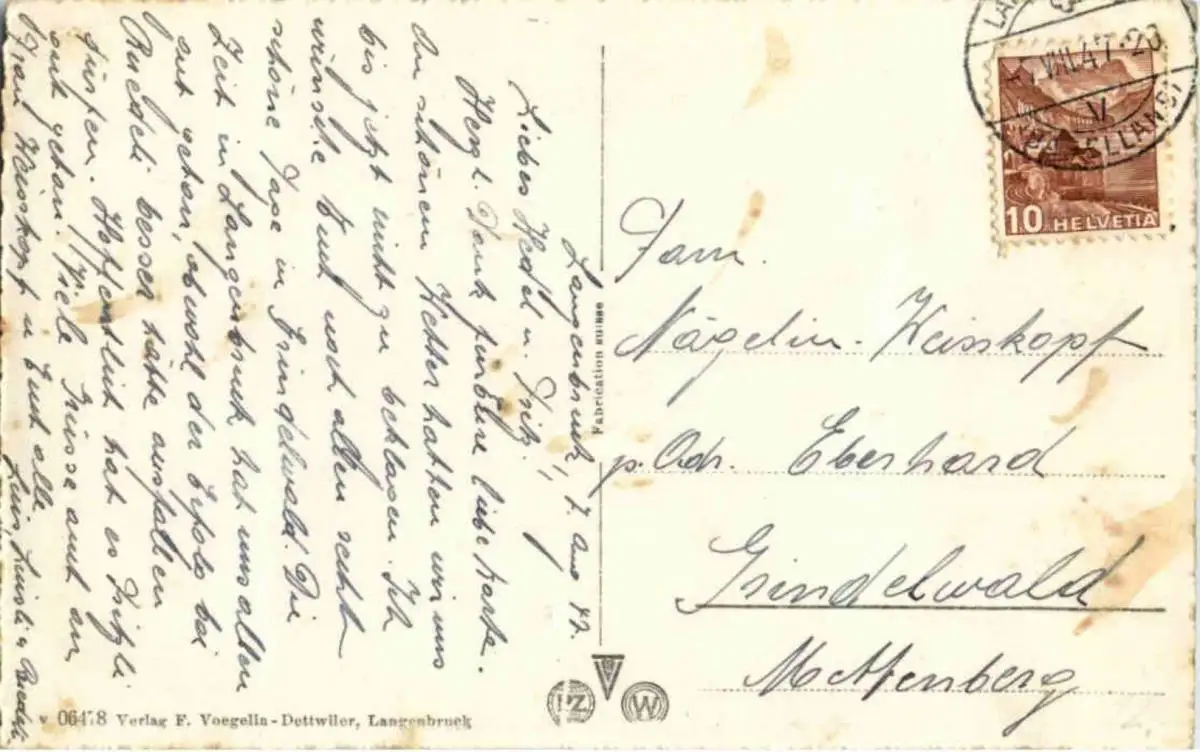 Langenbruck, 7. Aug 47.
Liebes Hedel u. Fritz!
Herzl. Dank für Eure liebe Karte.
An schönem Wetter hatten wir uns
bis jetzt nicht zu beklagen. Ich
wünsche Euch noch allen recht
schöne Tage in Grindelwald. Die
Zeit in Langenbruck hat uns allen
gut getan, obwohl der Erfolg bei
Ruedeli besser hätte ausfallen
dürfen. Hoffentlich hat es Fritzli
gut getan. Viele Grüsse auch an
Frau Weisskopf u Euch alle
Luisli u Ruedeli
Fam.
Nägelin-Weisskopf
p. Adr. Eberhard
Grindelwald
Mettenberg
VIII.47-20
V
10 HELVETIA
Fabrication suisse
PZ
W
v 06478 Verlag F. Voegelin-Dettwiler, Langenbruck